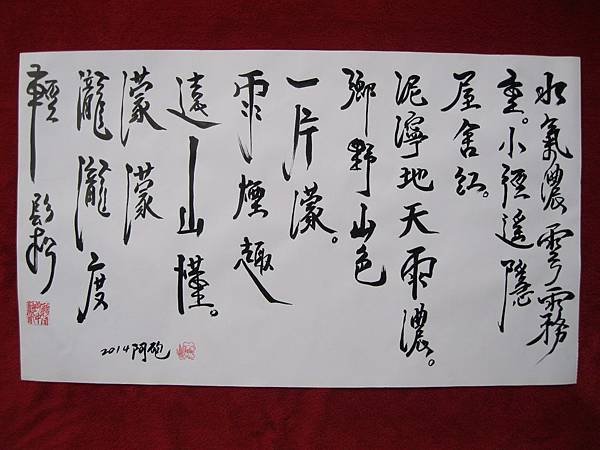 水氣濃雲霧
重。小徑遙隱
屋舍紅。
泥濘地天雨濃。
鄉野山色
一片濛。
雨煙趣
遠山懂。
濛濛
瀧瀧度
輕
2014阿砲